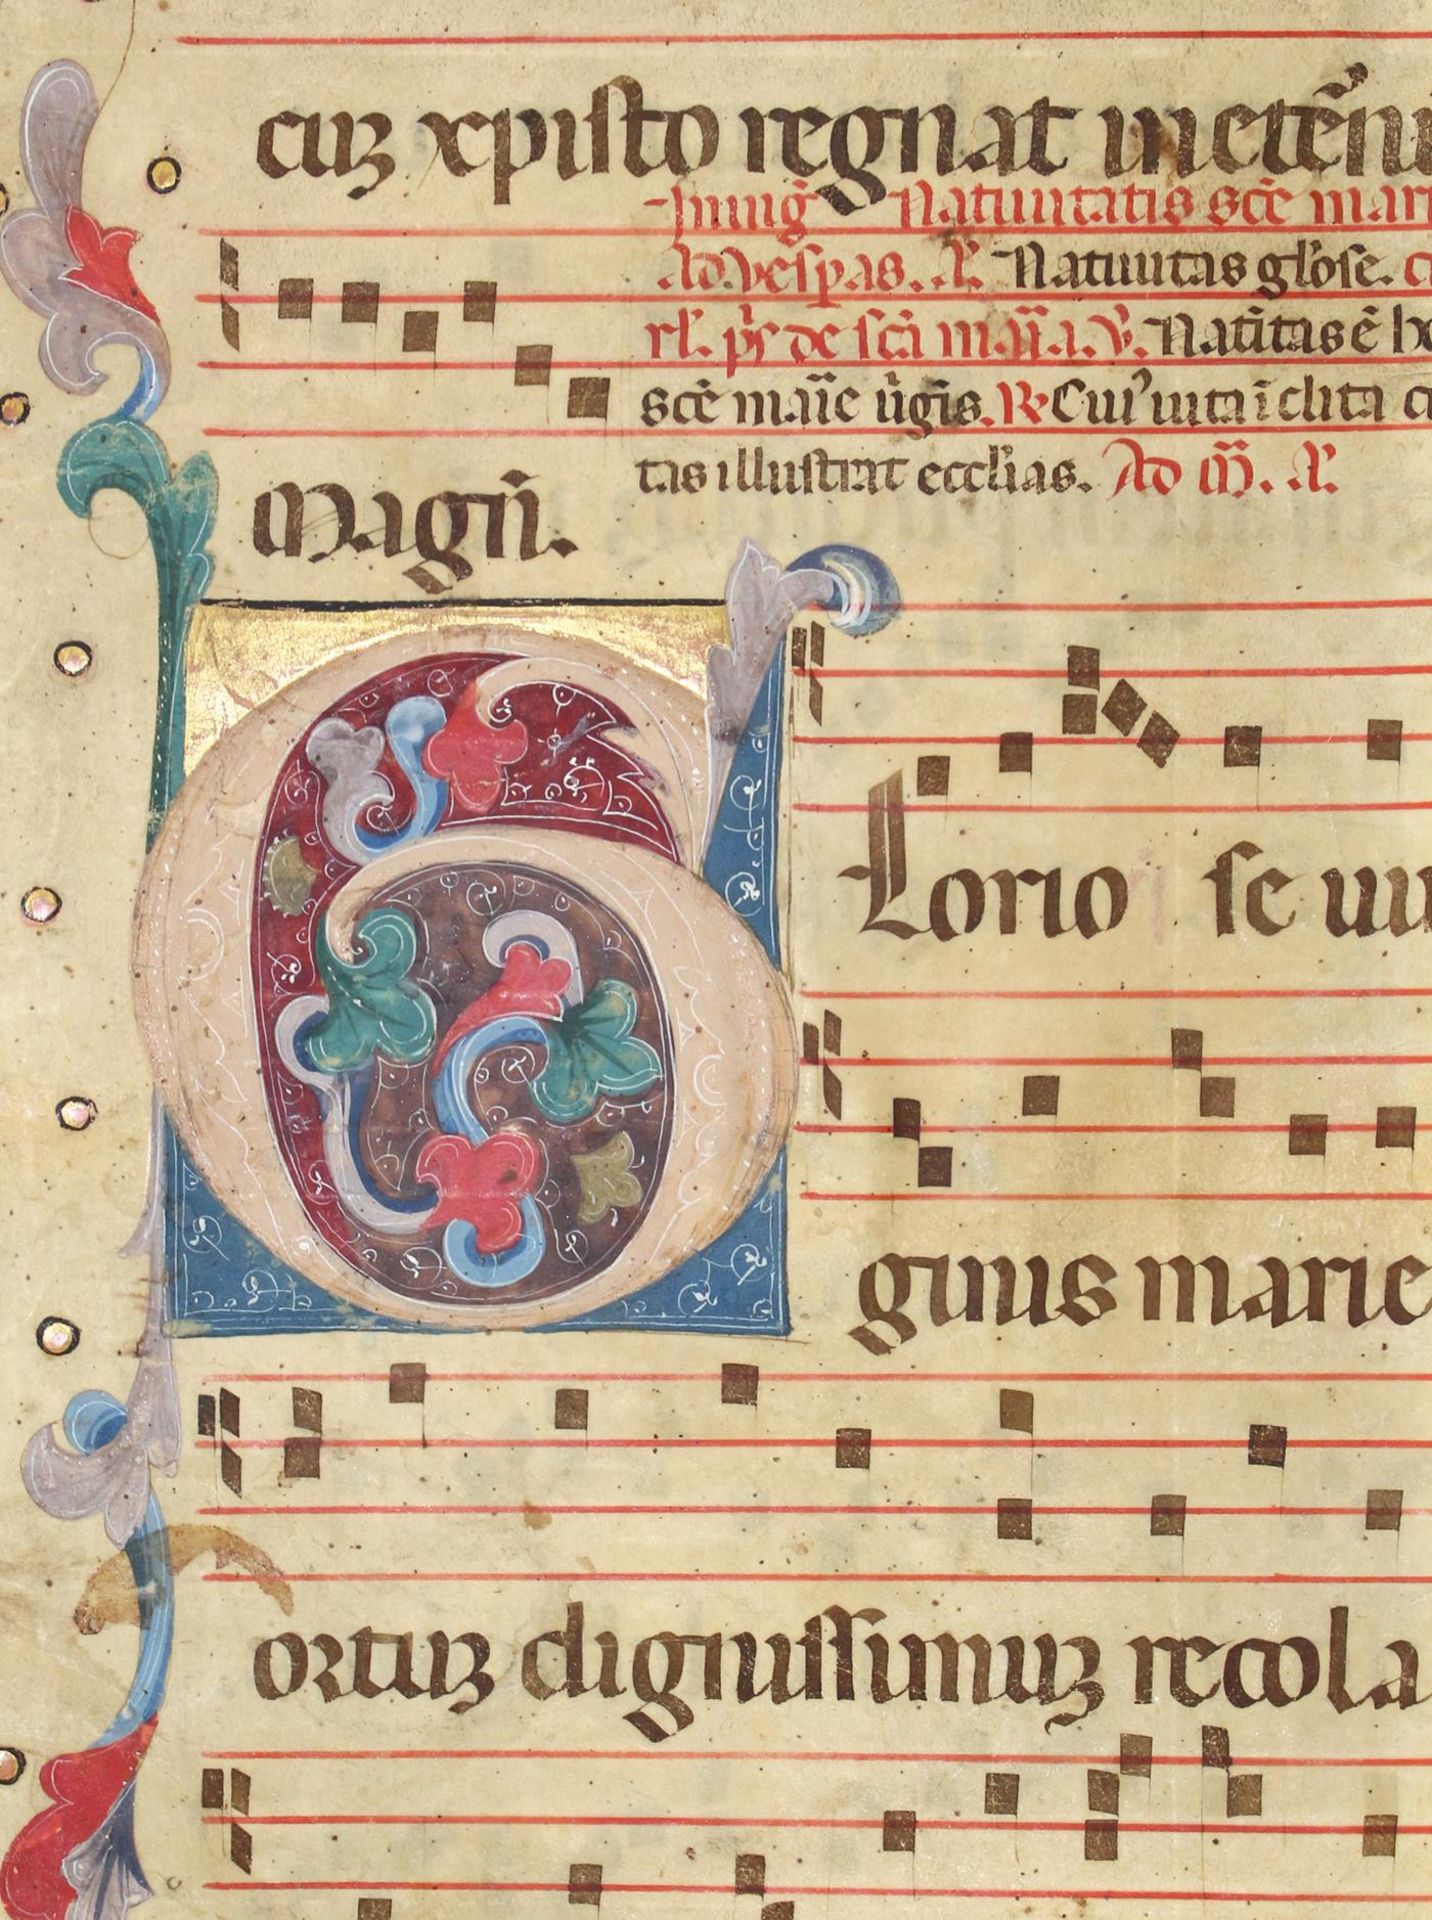 cuʒ xpisto regnat in etẽn
In inuig̃ Natiuitatis sc̃e mari
Ad vesperas. A͂. Natiuitas gl'ose. c
rl'. p̃s de sc̃a m̃aia. V̶. Nati͂tas ẽ ho
sc̃e maĩe ũgiĩs. R̶ Cui' uita ĩclita c
tas illustrat eccl'ias. Ad M̃. A͂.
Magñ.
G Lorio se uir
ginis marie
ortuʒ dignissimuʒ recola